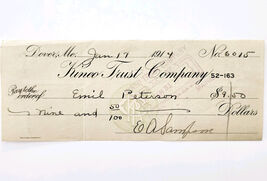 Dover, Me. Jan 17 1914 No. 6015
Kineo Trust Company 52-163
Pay to the order of Emil Peterson $9.50
Nine and 50/100 Dollars
E A Sampson